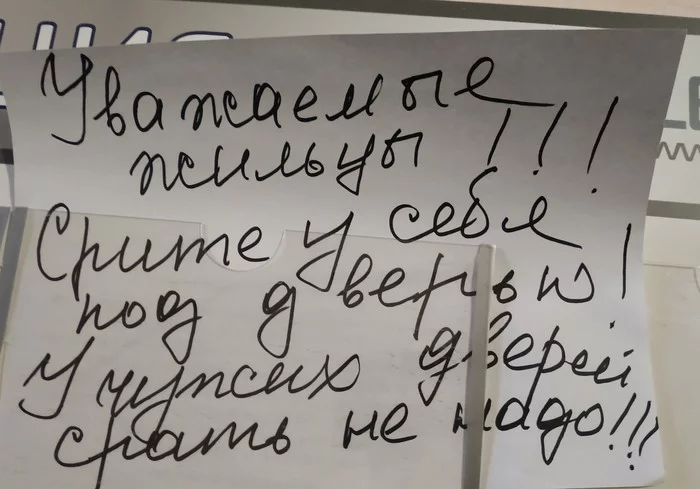 Уважаемые
жильцы !!!
Срите у себя
под дверью!
У чужих дверей
срать не надо!!!